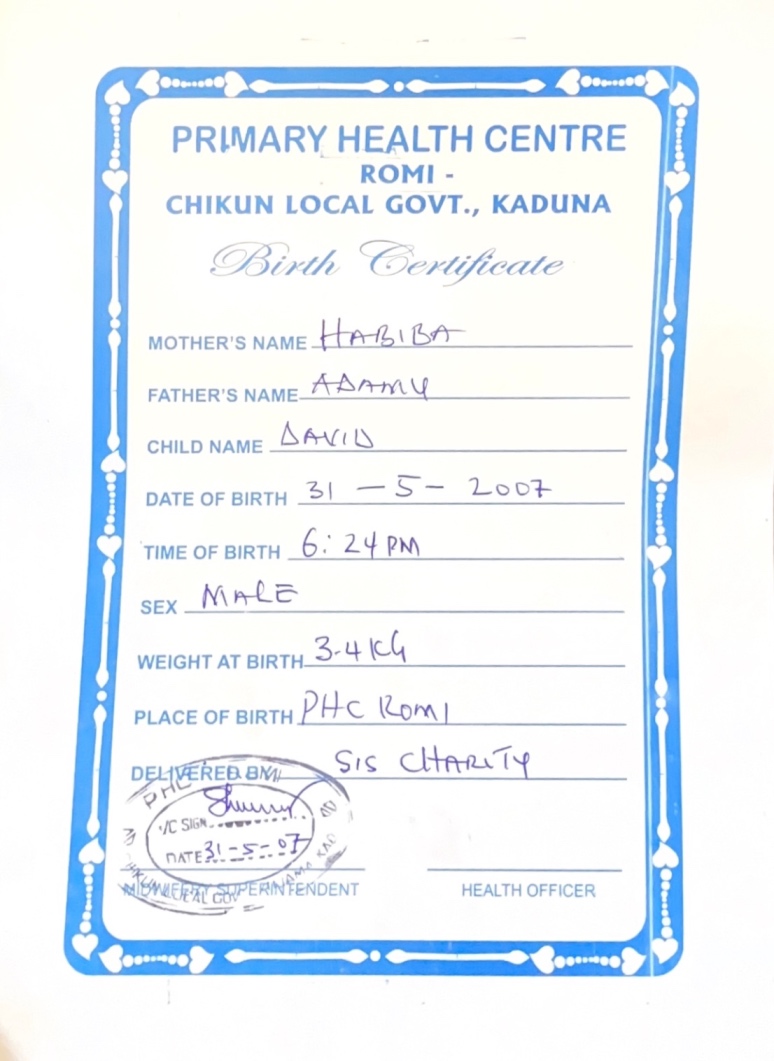 PRIMARY HEALTH CENTRE
ROMI -
CHIKUN LOCAL GOVT., KADUNA
Birth Certificate
MOTHER'S NAME HABIBA
FATHER'S NAME ADAMU
CHILD NAME DAVID
DATE OF BIRTH 31 - 5 - 2007
TIME OF BIRTH 6:24 PM
SEX MALE
WEIGHT AT BIRTH 3.4 KG
PLACE OF BIRTH PHC ROMI
DELIVERED BY SIS CHARITY
PHC
I/C SIGN
DATE 31-5-07
MIDWIFERY SUPERINTENDENT HEALTH OFFICER